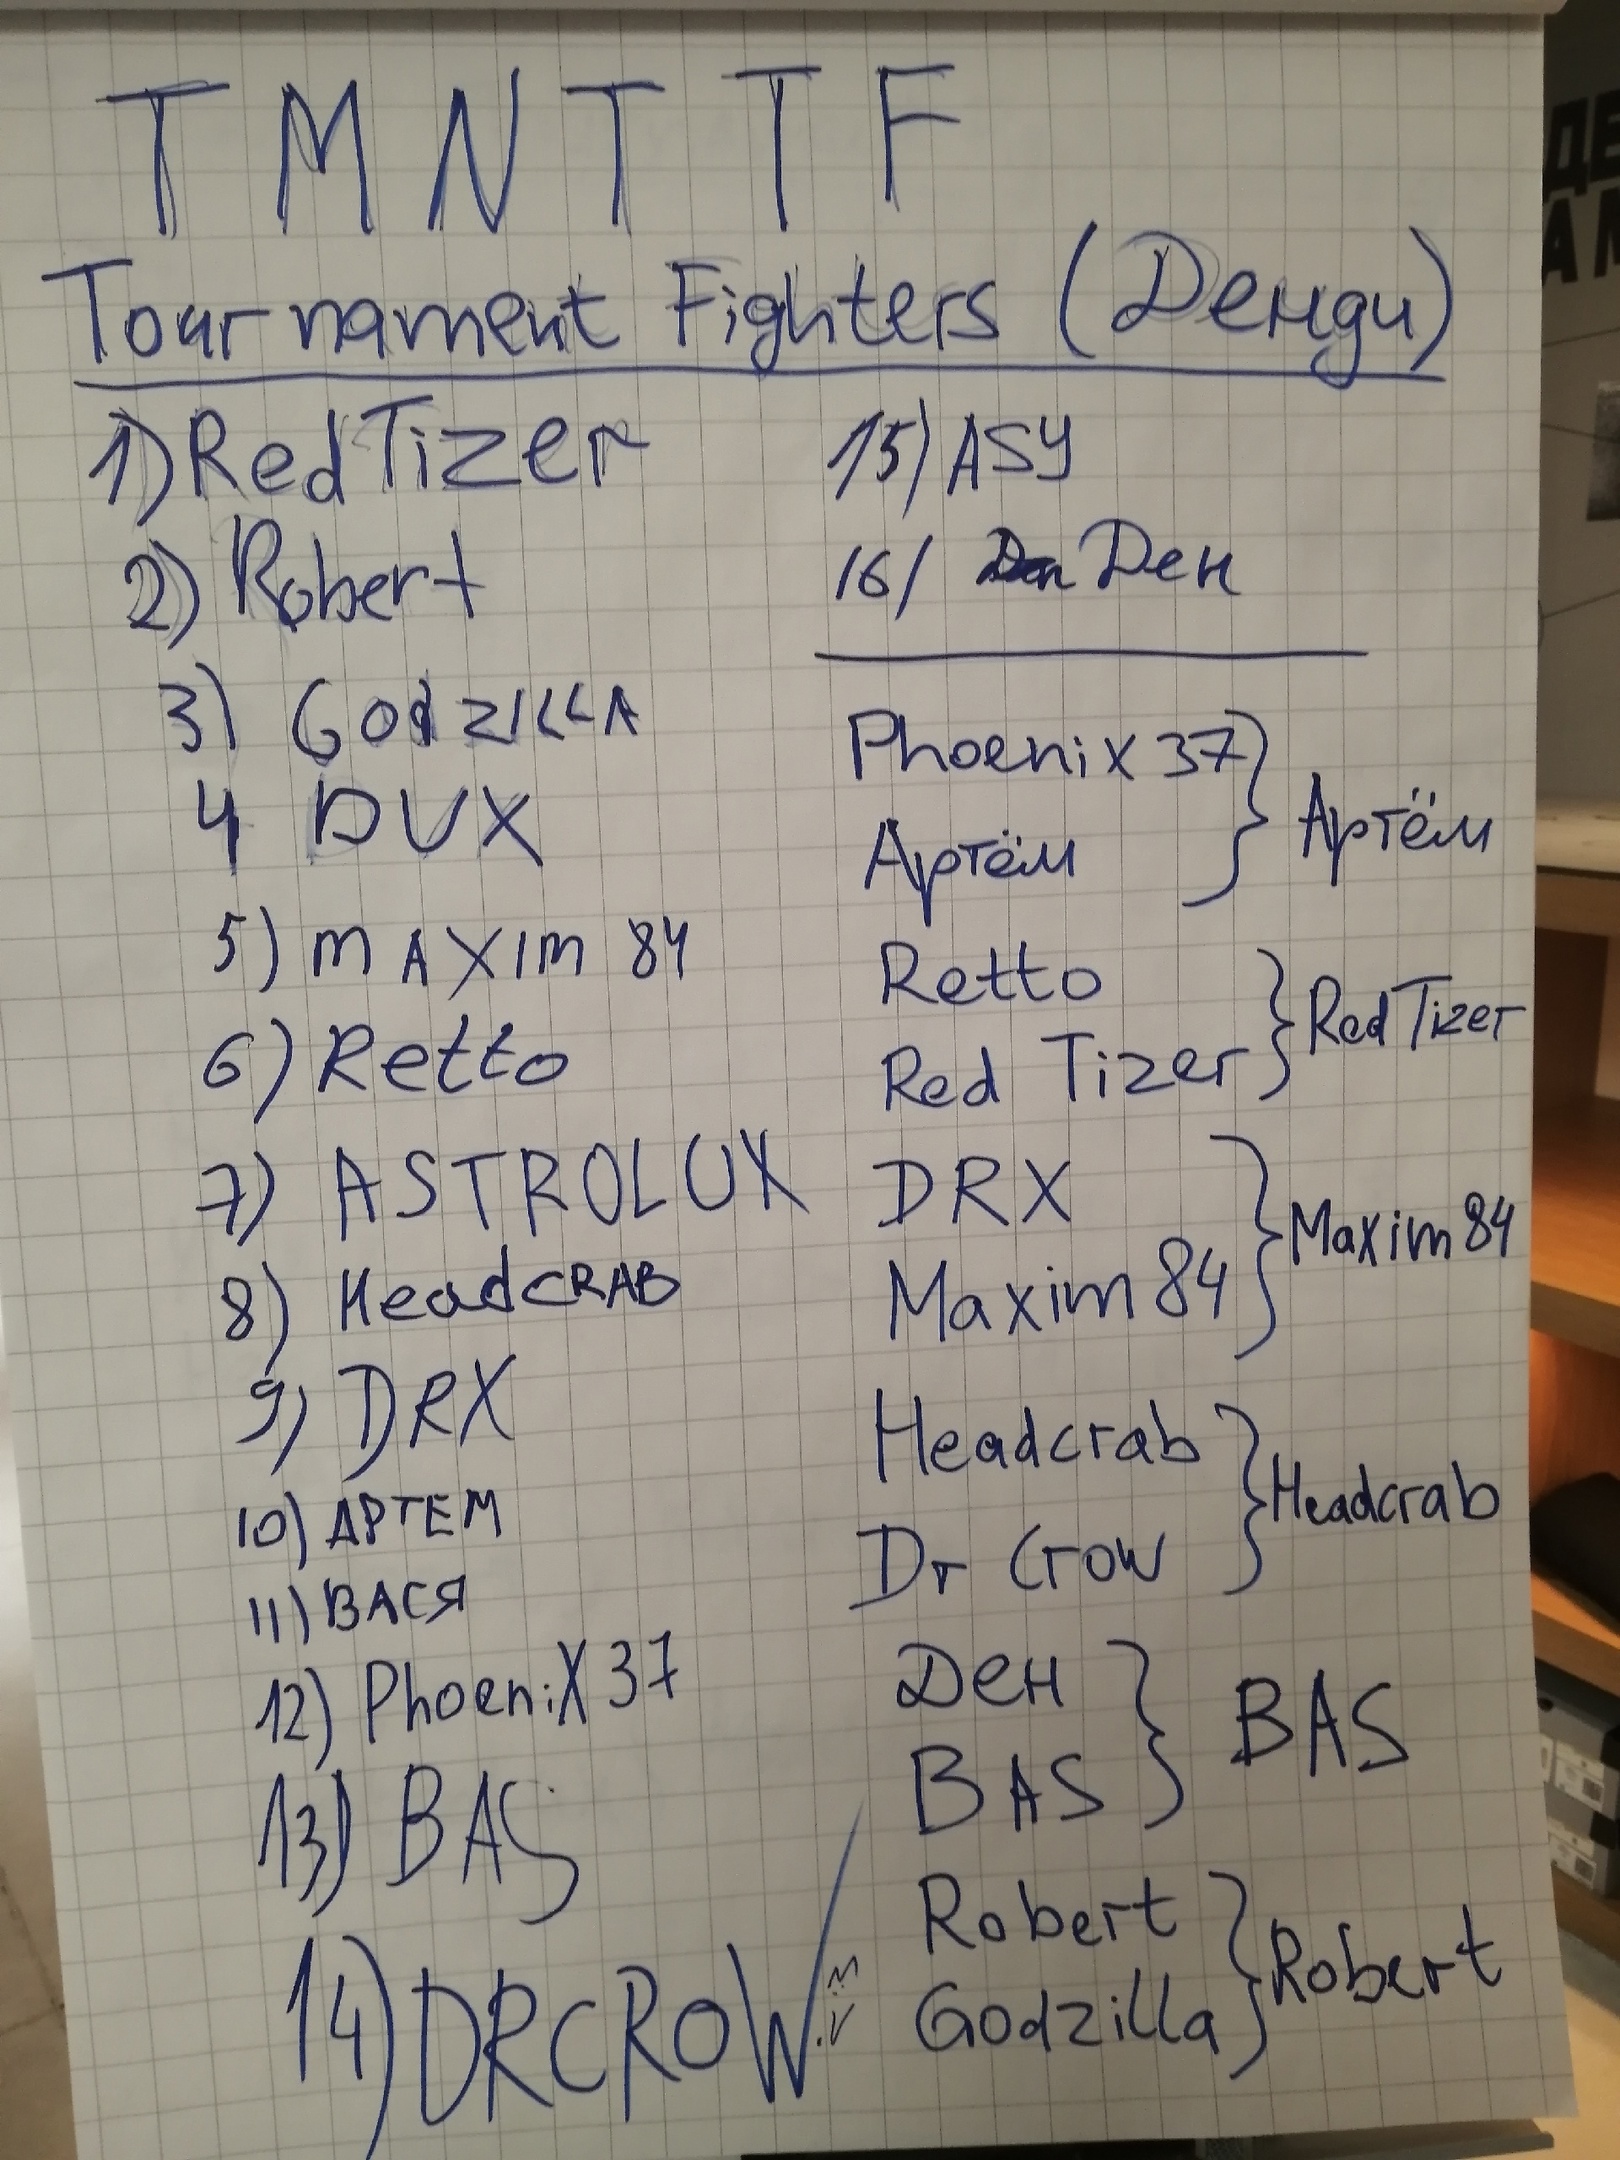 TMNT TF
Tournament Fighters (Денди)
1) RedTizer
2) Robert
3) GodZILLA
4 DUX
5) mAXIm 84
6) Retto
7) ASTROLUX
8) HeadCRAB
9) DRX
10) АРТЕМ
11) ВАСЯ
12) PhoeniX37
13) BAS
14) DRCROW
15) ASY
16) Ден
Phoenix 37
Артём
Артём
Retto
Red Tizer
Red Tizer
DRX
Maxim 84
Maxim 84
Headcrab
Dr Crow
Headcrab
Ден
BAS
BAS
Robert
Godzilla
Robert